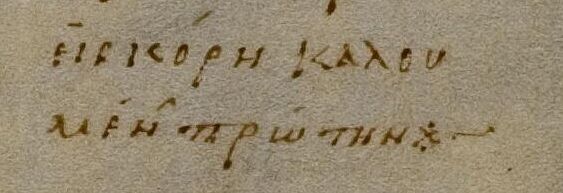 κόρη καλου
μένη πρώτηνα